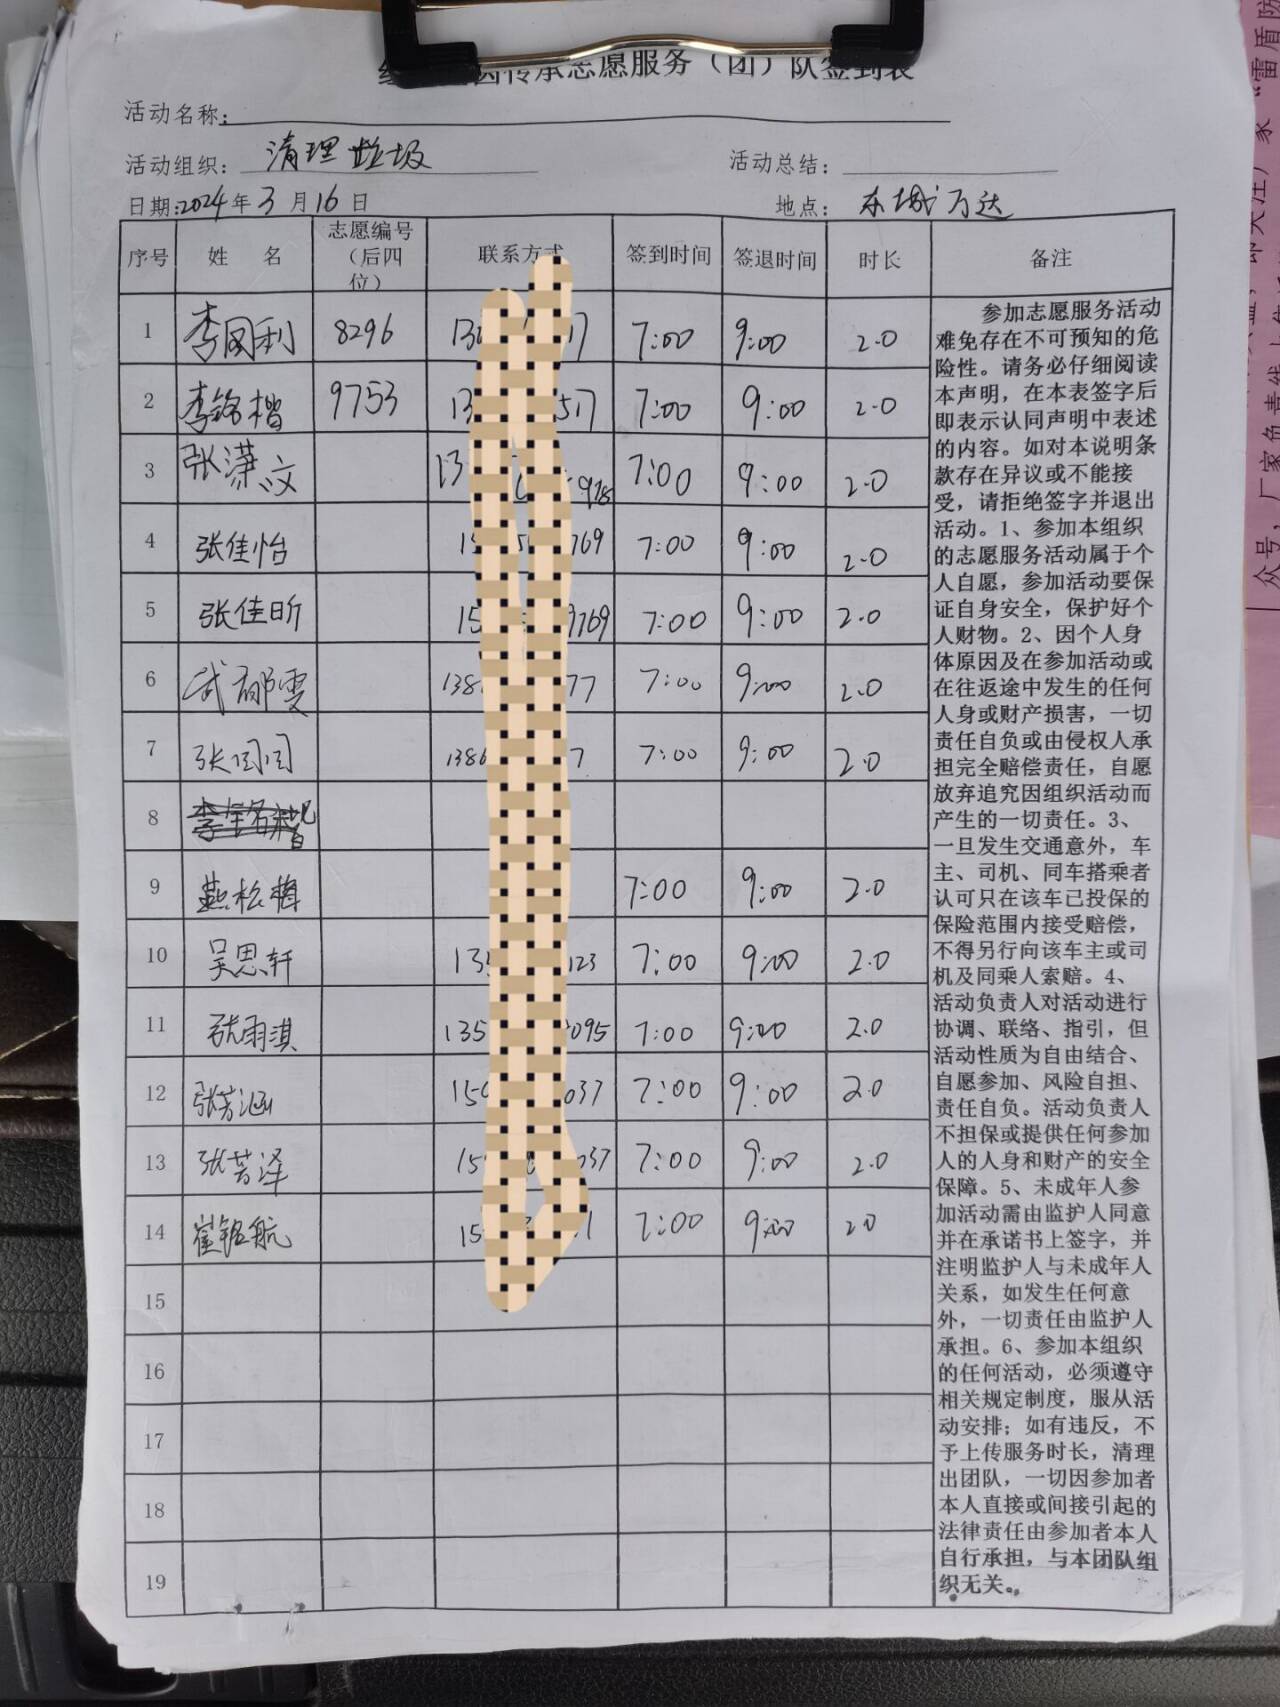 因传承志愿服务（团）队签到表
活动名称：
活动组织：清理垃圾 活动总结：
日期：2024年3月16日 地点：东城万达
序号 姓 名 志愿编号（后四位） 联系方式 签到时间 签退时间 时长 备注
1 李国利 8296 17 7:00 9:00 2.0
2 李铭楷 9753 517 7:00 9:00 2.0
3 张潇文 13 978 7:00 9:00 2.0
4 张佳怡 15 769 7:00 9:00 2.0
5 张佳昕 15 9769 7:00 9:00 2.0
6 武郁雯 138 77 7:00 9:00 2.0
7 张闰闰 1386 7 7:00 9:00 2.0
8
9 燕松梅 7:00 9:00 2.0
10 吴思轩 135 123 7:00 9:00 2.0
11 张雨淇 135 095 7:00 9:00 2.0
12 张芳涵 15 037 7:00 9:00 2.0
13 张芳泽 15 037 7:00 9:00 2.0
14 崔铭航 15 1 7:00 9:00 2.0
15
16
17
18
19
参加志愿服务活动
难免存在不可预知的危
险性。请务必仔细阅读
本声明，在本表签字后
即表示认同声明中表述
的内容。如对本说明条
款存在异议或不能接
受，请拒绝签字并退出
活动。1、参加本组织
的志愿服务活动属于个
人自愿，参加活动要保
证自身安全，保护好个
人财物。2、因个人身
体原因及在参加活动或
在往返途中发生的任何
人身或财产损害，一切
责任自负或由侵权人承
担完全赔偿责任，自愿
放弃追究因组织活动而
产生的一切责任。3、
一旦发生交通意外，车
主、司机、同车搭乘者
认可只在该车已投保的
保险范围内接受赔偿，
不得另行向该车主或司
机及同乘人索赔。4、
活动负责人对活动进行
协调、联络、指引，但
活动性质为自由结合、
自愿参加、风险自担、
责任自负。活动负责人
不担保或提供任何参加
人的人身和财产的安全
保障。5、未成年人参
加活动需由监护人同意
并在承诺书上签字，并
注明监护人与未成年人
关系，如发生任何意
外，一切责任由监护人
承担。6、参加本组织
的任何活动，必须遵守
相关规定制度，服从活
动安排；如有违反，不
予上传服务时长，清理
出团队，一切因参加者
本人直接或间接引起的
法律责任由参加者本人
自行承担，与本团队组
织无关。